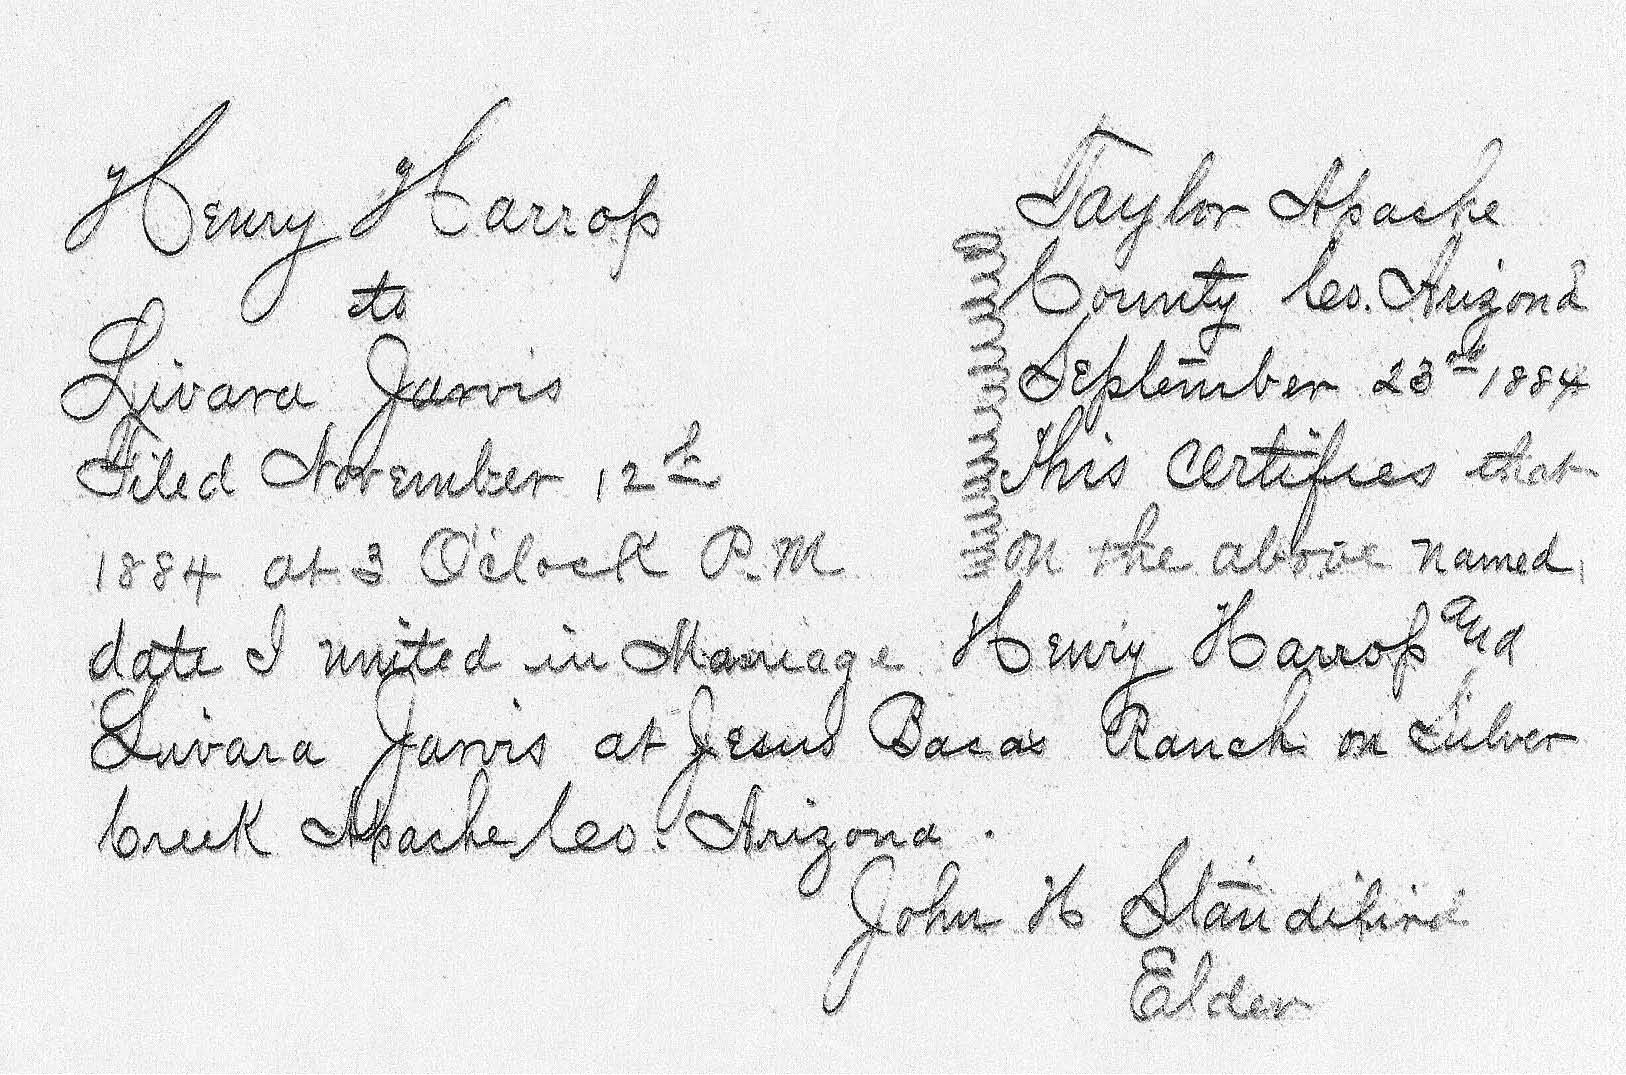 Henry Harrop
to
Livara Jarvis
Filed November 12th
1884 at 3 O'clock P.M
Taylor Apache
County Co. Arizona
September 23rd 1884
This Certifies that
on the above named
date I united in Marriage Henry Harrop and
Livara Jarvis at Jesus Bacas Ranch on Silver
Creek Apache Co. Arizona.
John H
Elder